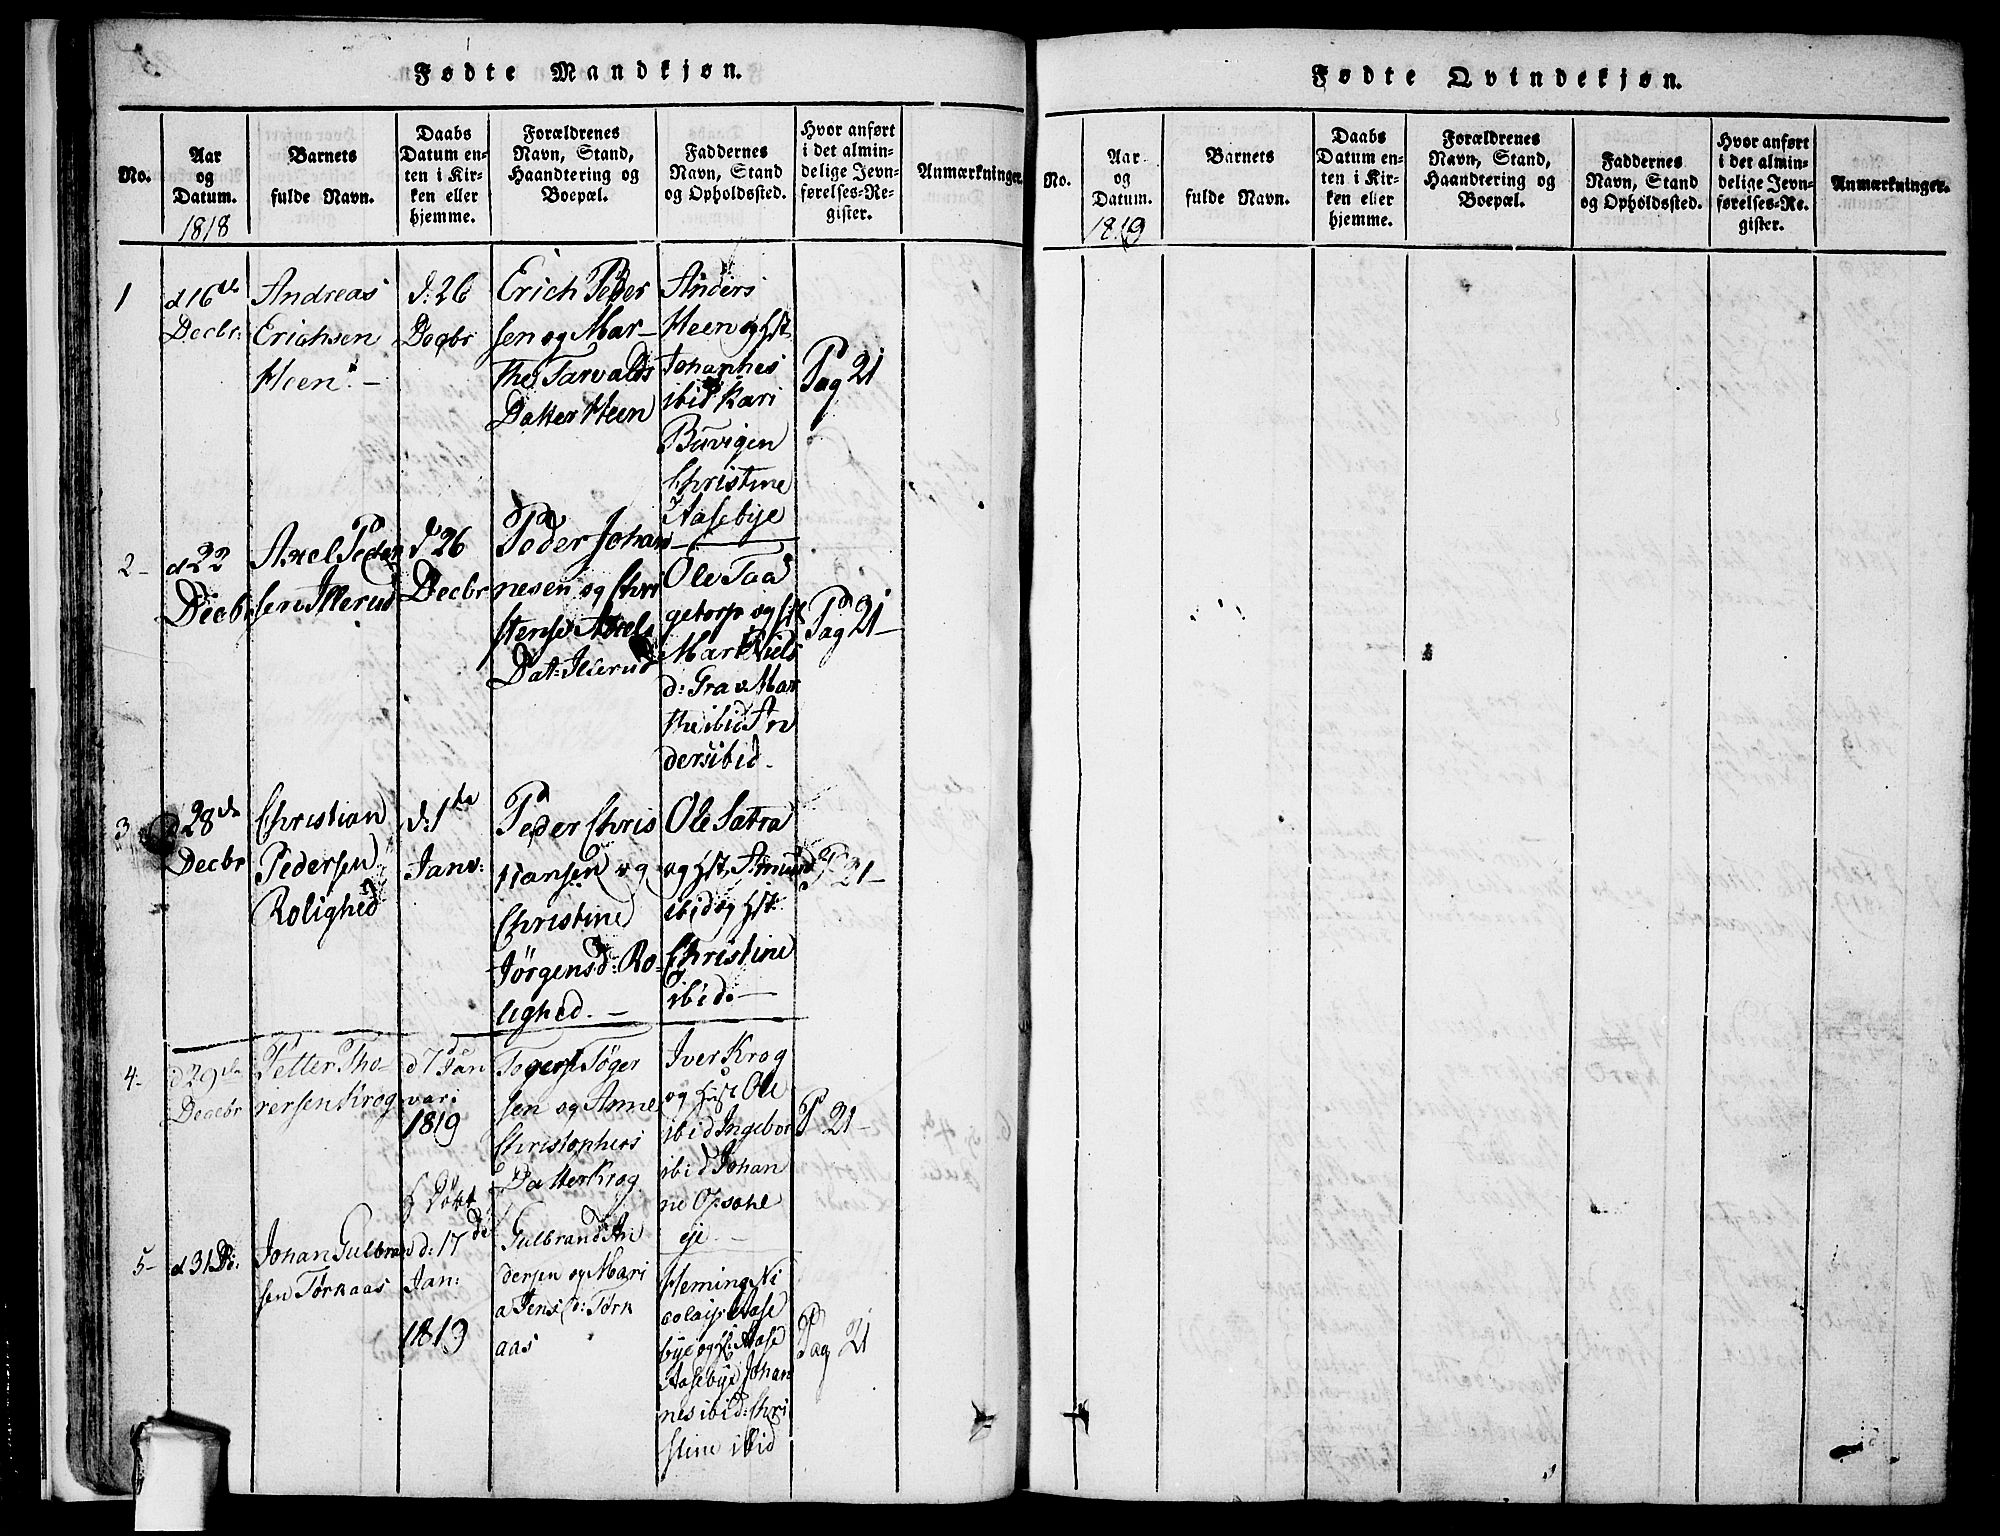 Fødte Mandkjøn.
No.
Aar
og
Datum.
1818
Barnets
fulde Navn.
Daabs
Datum en-
ten i Kir-
ken eller
hjemme.
Forældrenes
Navn, Stand,
Haandtering og
Boepæl.
Faddernes
Navn, Stand
og Opholdssted.
Hvor anført
i det almin-
delige Jevn-
førelses-Re-
gister.
Anmærkninger.
1
d 16de
Decbr:
Andreas
Erichsen
Heen. –
d: 26
Decbr
Erich Peder
sen og Mar-
the Tarvalds
Datter Heen
Anders
Heen og Hst
Johannes
ibid Kari
Buvigen
Christine
Aasebye
Pag 21
2-
d 22
Decbr
Axel Peder
sen Illerud
d 26
Decbr
Peder Johan
nesen og Chri
stense Axels
Dat: Illerud
Ole Taa
getorp og Hst
Mari Niels
d: Gra v: Mar
the ibid An
ders ibid –
Pag 21 –
3
d 28de
Decbr
Christian
Pedersen
Rolighed
d: 1te
Janv:
Peder Chris
tiansen og
Christine
Jørgensd: Ro-
lighed. –
Ole Sætra
og Hst, Amund
ibid og Hst
Christine
ibid. –
P 21 –
4-
d 29de
Decebr
Petter Tho-
rersen Krog
d 7 Jan
vari
1819
Tøger
sen og Anne
Christophers
Datter Krog.
Iver Krog
og Hust Ole
ibid Ingebor
ibid Johan
ne Opsahl
eje. –
P 21 –
5-
d 31 D:
Johan Gulbran
sen Tørkaas
Døbt
d: 17de
Jan:
1819
Gulbrand An
dersen og Mari
a Jens d: Tørk
aas
Fleming Ni
colaisen Aase
bye og H: Aase
Aasebye Johan
nes ibid: Chri
stine ibid
Pag 21
Fødte Qvindekjøn.
No.
Aar
og
Datum.
1819
Barnets
fulde Navn.
Daabs
Datum en-
ten i Kir-
ken eller
hjemme.
Forældrenes
Navn, Stand,
Haandtering og
Boepæl.
Faddernes
Navn, Stand
og Opholdssted.
Hvor anført
i det almin-
delige Jevn-
førelses-Re-
gister.
Anmærkninger.